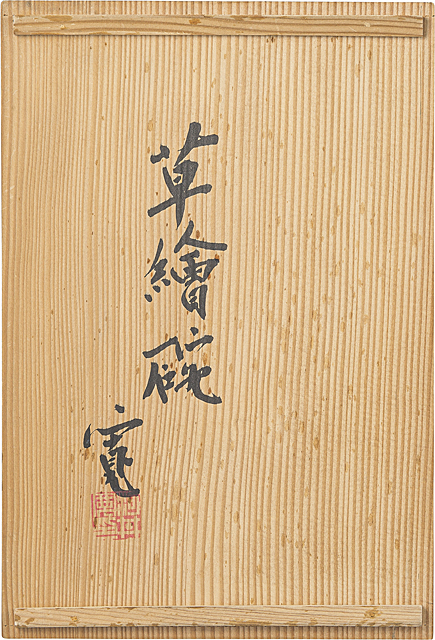 草繪碗
寛